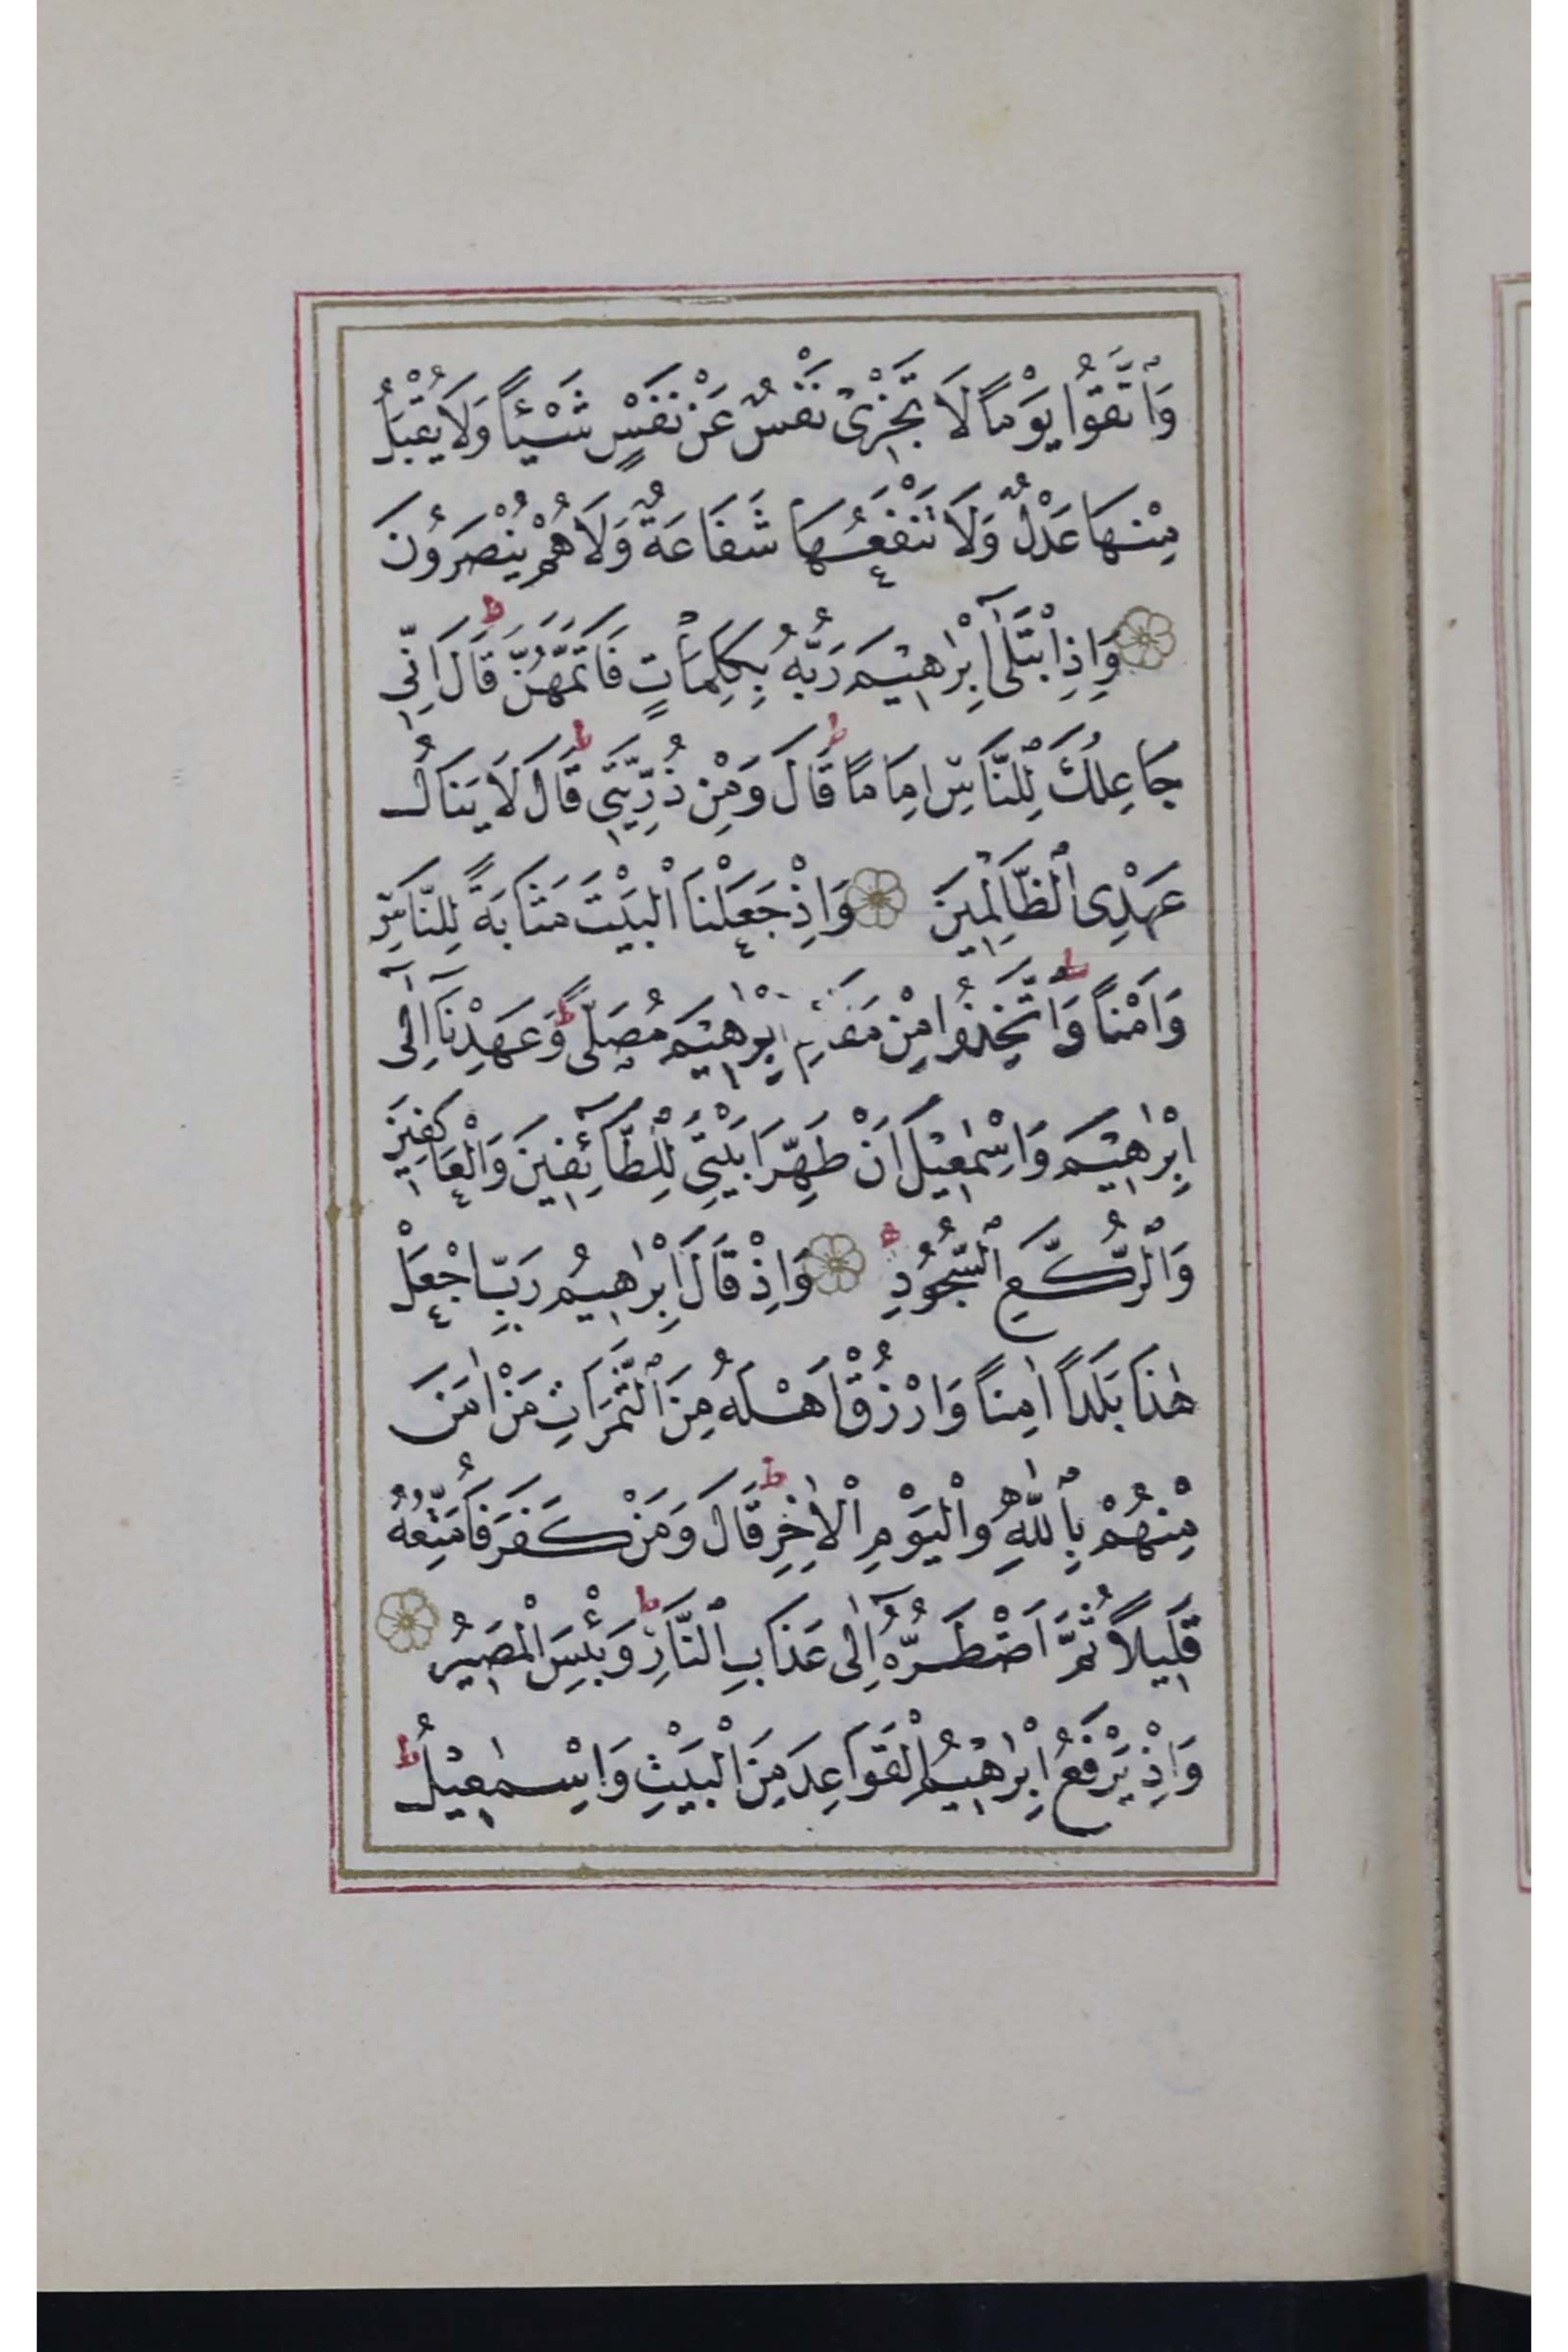 وَاتَّقُوا يَوْمًا لَا تَجْزِى نَفْسٌ عَنْ نَفْسٍ شَيْـًٔا وَلَا يُقْبَلُ
مِنْهَا عَدْلٌ وَلَا تَنْفَعُهَا شَفَاعَةٌ وَلَا هُمْ يُنْصَرُونَ
وَاِذِ ابْتَلٰٓى اِبْرٰهٖيمَ رَبُّهُ بِكَلِمَاتٍ فَاَتَمَّهُنَّ ط قَالَ اِنّٖى
جَاعِلُكَ لِلنَّاسِ اِمَامًا ط قَالَ وَمِنْ ذُرِّيَّتٖى ط قَالَ لَا يَنَالُ
عَهْدِى الظَّالِمٖينَ وَاِذْ جَعَلْنَا الْبَيْتَ مَثَابَةً لِلنَّاسِ
وَاَمْنًا ط وَاتَّخِذُوا مِنْ مَقَامِ اِبْرٰهٖيمَ مُصَلًّى ط وَعَهِدْنَٓا اِلٰٓى
اِبْرٰهٖيمَ وَاِسْمٰعٖيلَ اَنْ طَهِّرَا بَيْتِىَ لِلطَّٓائِفٖينَ وَالْعَاكِفٖينَ
وَالرُّكَّعِ السُّجُودِ ط وَاِذْ قَالَ اِبْرٰهٖيمُ رَبِّ اجْعَلْ
هٰذَا بَلَدًا اٰمِنًا وَارْزُقْ اَهْلَهُ مِنَ الثَّمَرَاتِ مَنْ اٰمَنَ
مِنْهُمْ بِاللّٰهِ وَالْيَوْمِ الْاٰخِرِ ط قَالَ وَمَنْ كَفَرَ فَاُمَتِّعُهُ
قَلٖيلًا ثُمَّ اَضْطَرُّهُٓ اِلٰى عَذَابِ النَّارِ ط وَبِئْسَ الْمَصٖيرُ
وَاِذْ يَرْفَعُ اِبْرٰهٖيمُ الْقَوَاعِدَ مِنَ الْبَيْتِ وَاِسْمٰعٖيلُ ط